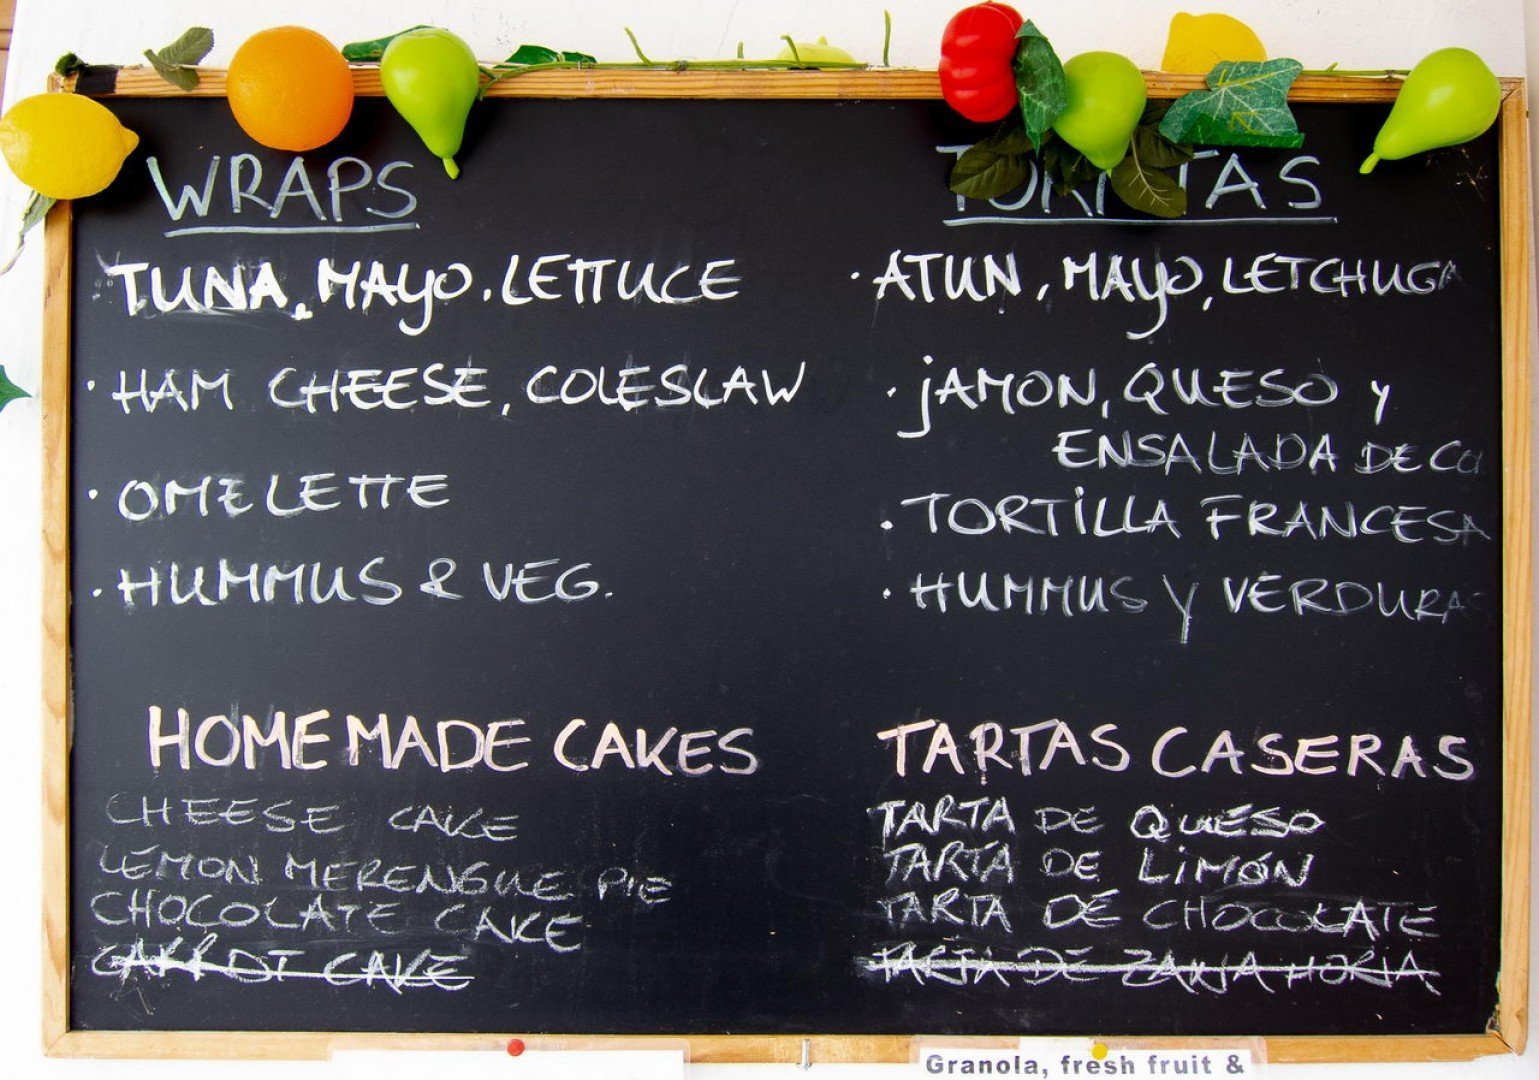 WRAPS
TUNA, MAYO, LETTUCE
· HAM CHEESE, COLESLAW
· OMELETTE
· HUMMUS & VEG.
HOMEMADE CAKES
CHEESE CAKE
LEMON MERENGUE PIE
CHOCOLATE CAKE
CARROT CAKE
· ATUN, MAYO, LETCHUGA
· JAMON, QUESO y
ENSALADA DE
· TORTILLA FRANCESA
· HUMMUS Y VERDURAS
TARTAS CASERAS
TARTA DE QUESO
TARTA DE LIMÓN
TARTA DE CHOCOLATE
TARTA DE ZANAHORIA
Granola, fresh fruit &